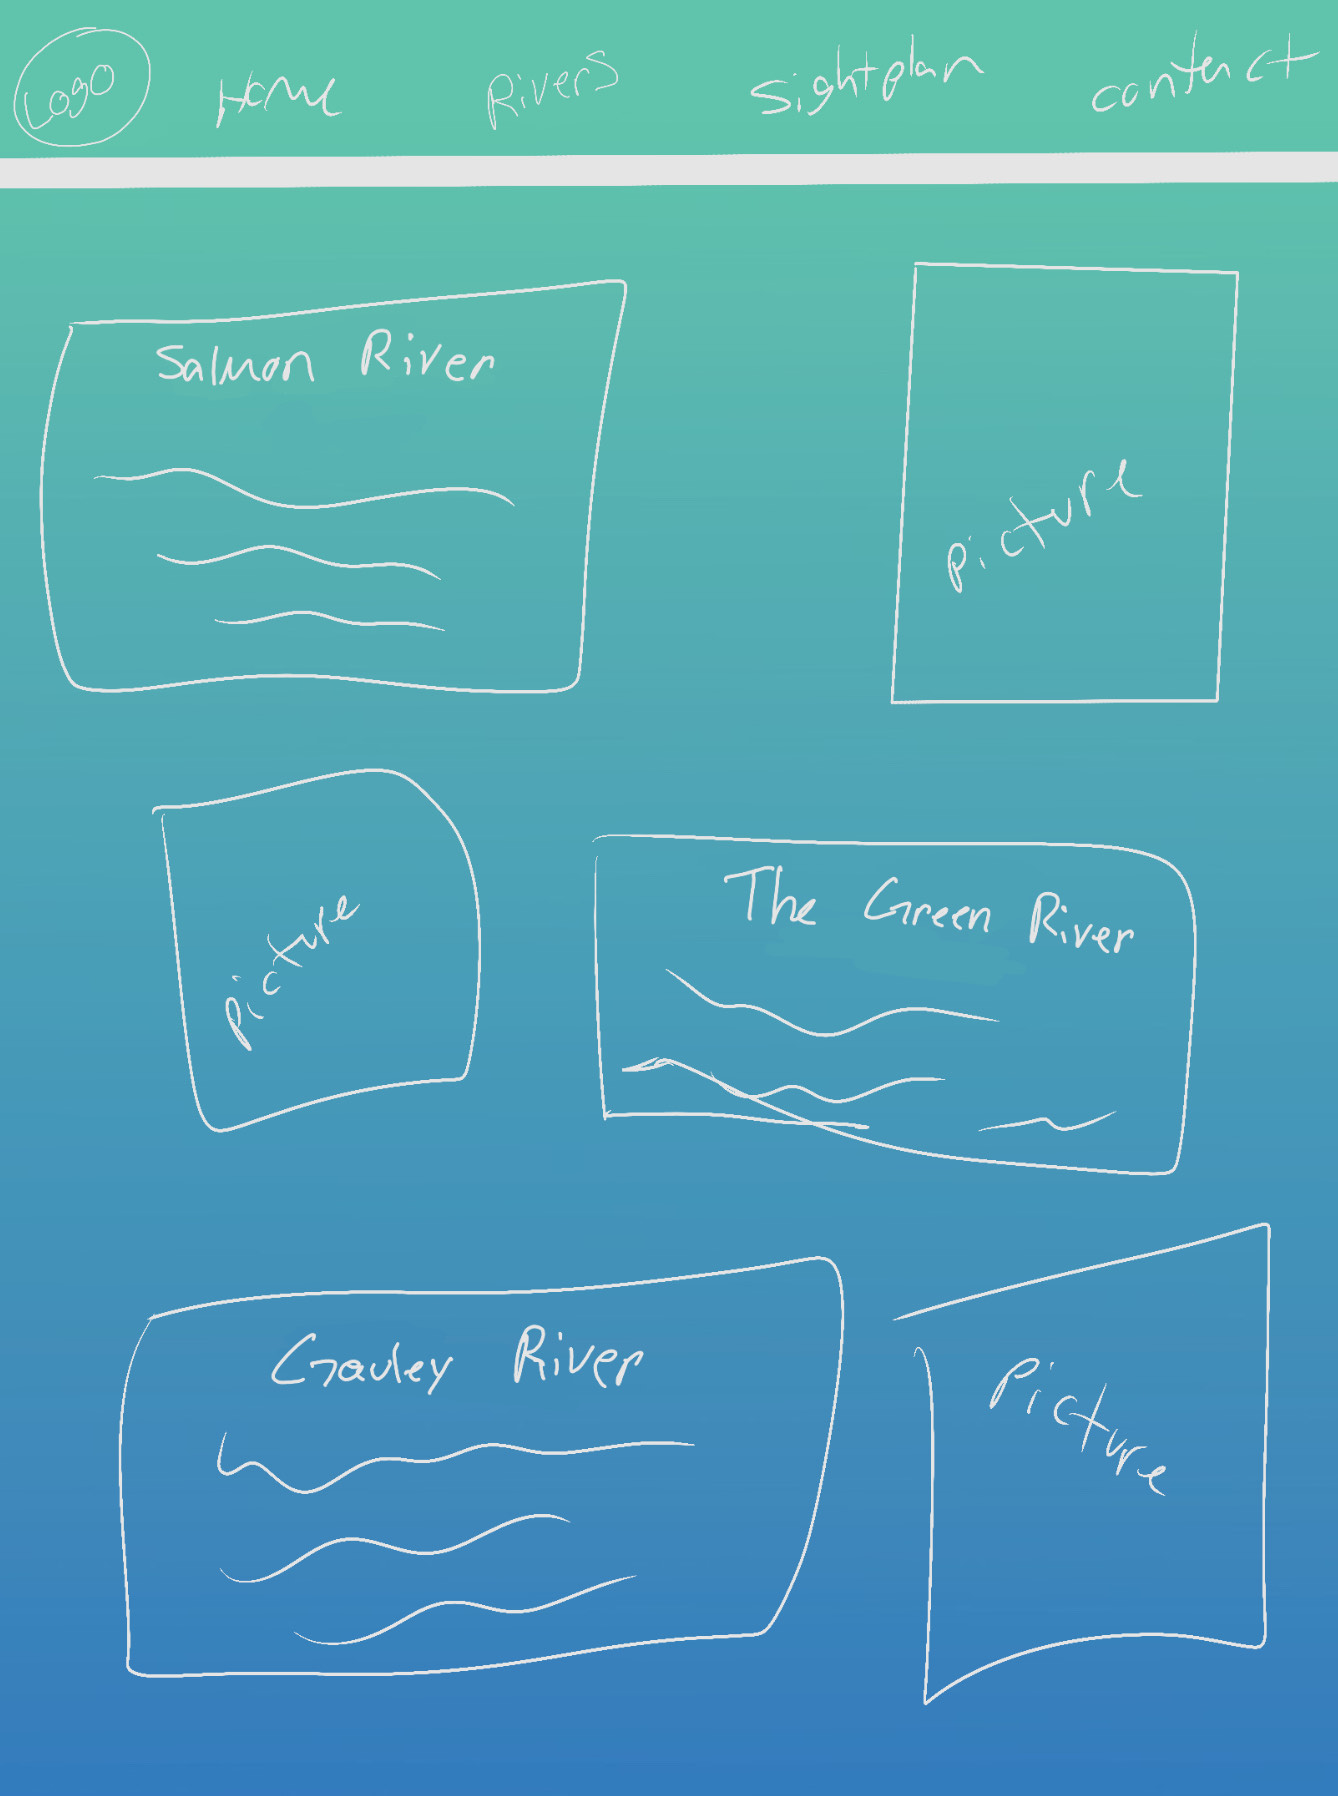 Logo Home Rivers Sightplan contenct
Salmon River
picture
picture
The Green River
Gauley River
Picture